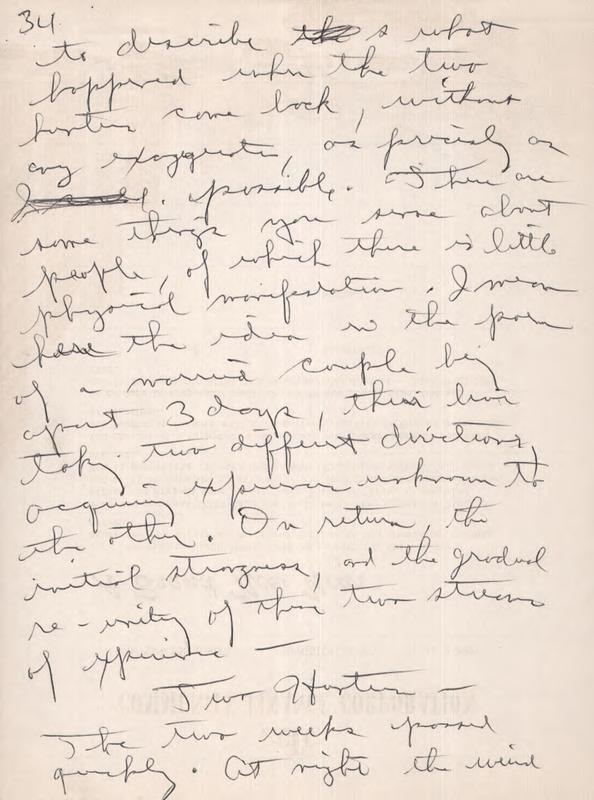 34
to describe what
happened when the two
hunters come back, without
any exaggeration, as precisely as
possible. There are
some things you sense about
people, of which there is little
physical manifestation. I mean
here the idea in the poem
of a married couple being
apart 3 days, their lives
taking two different directions,
acquiring experiences unknown to
the other. On return, the
initial strangeness, and the gradual
re-unity of these two streams
of experience —
Two Hunters —
The two weeks passed
quickly. At night the wind